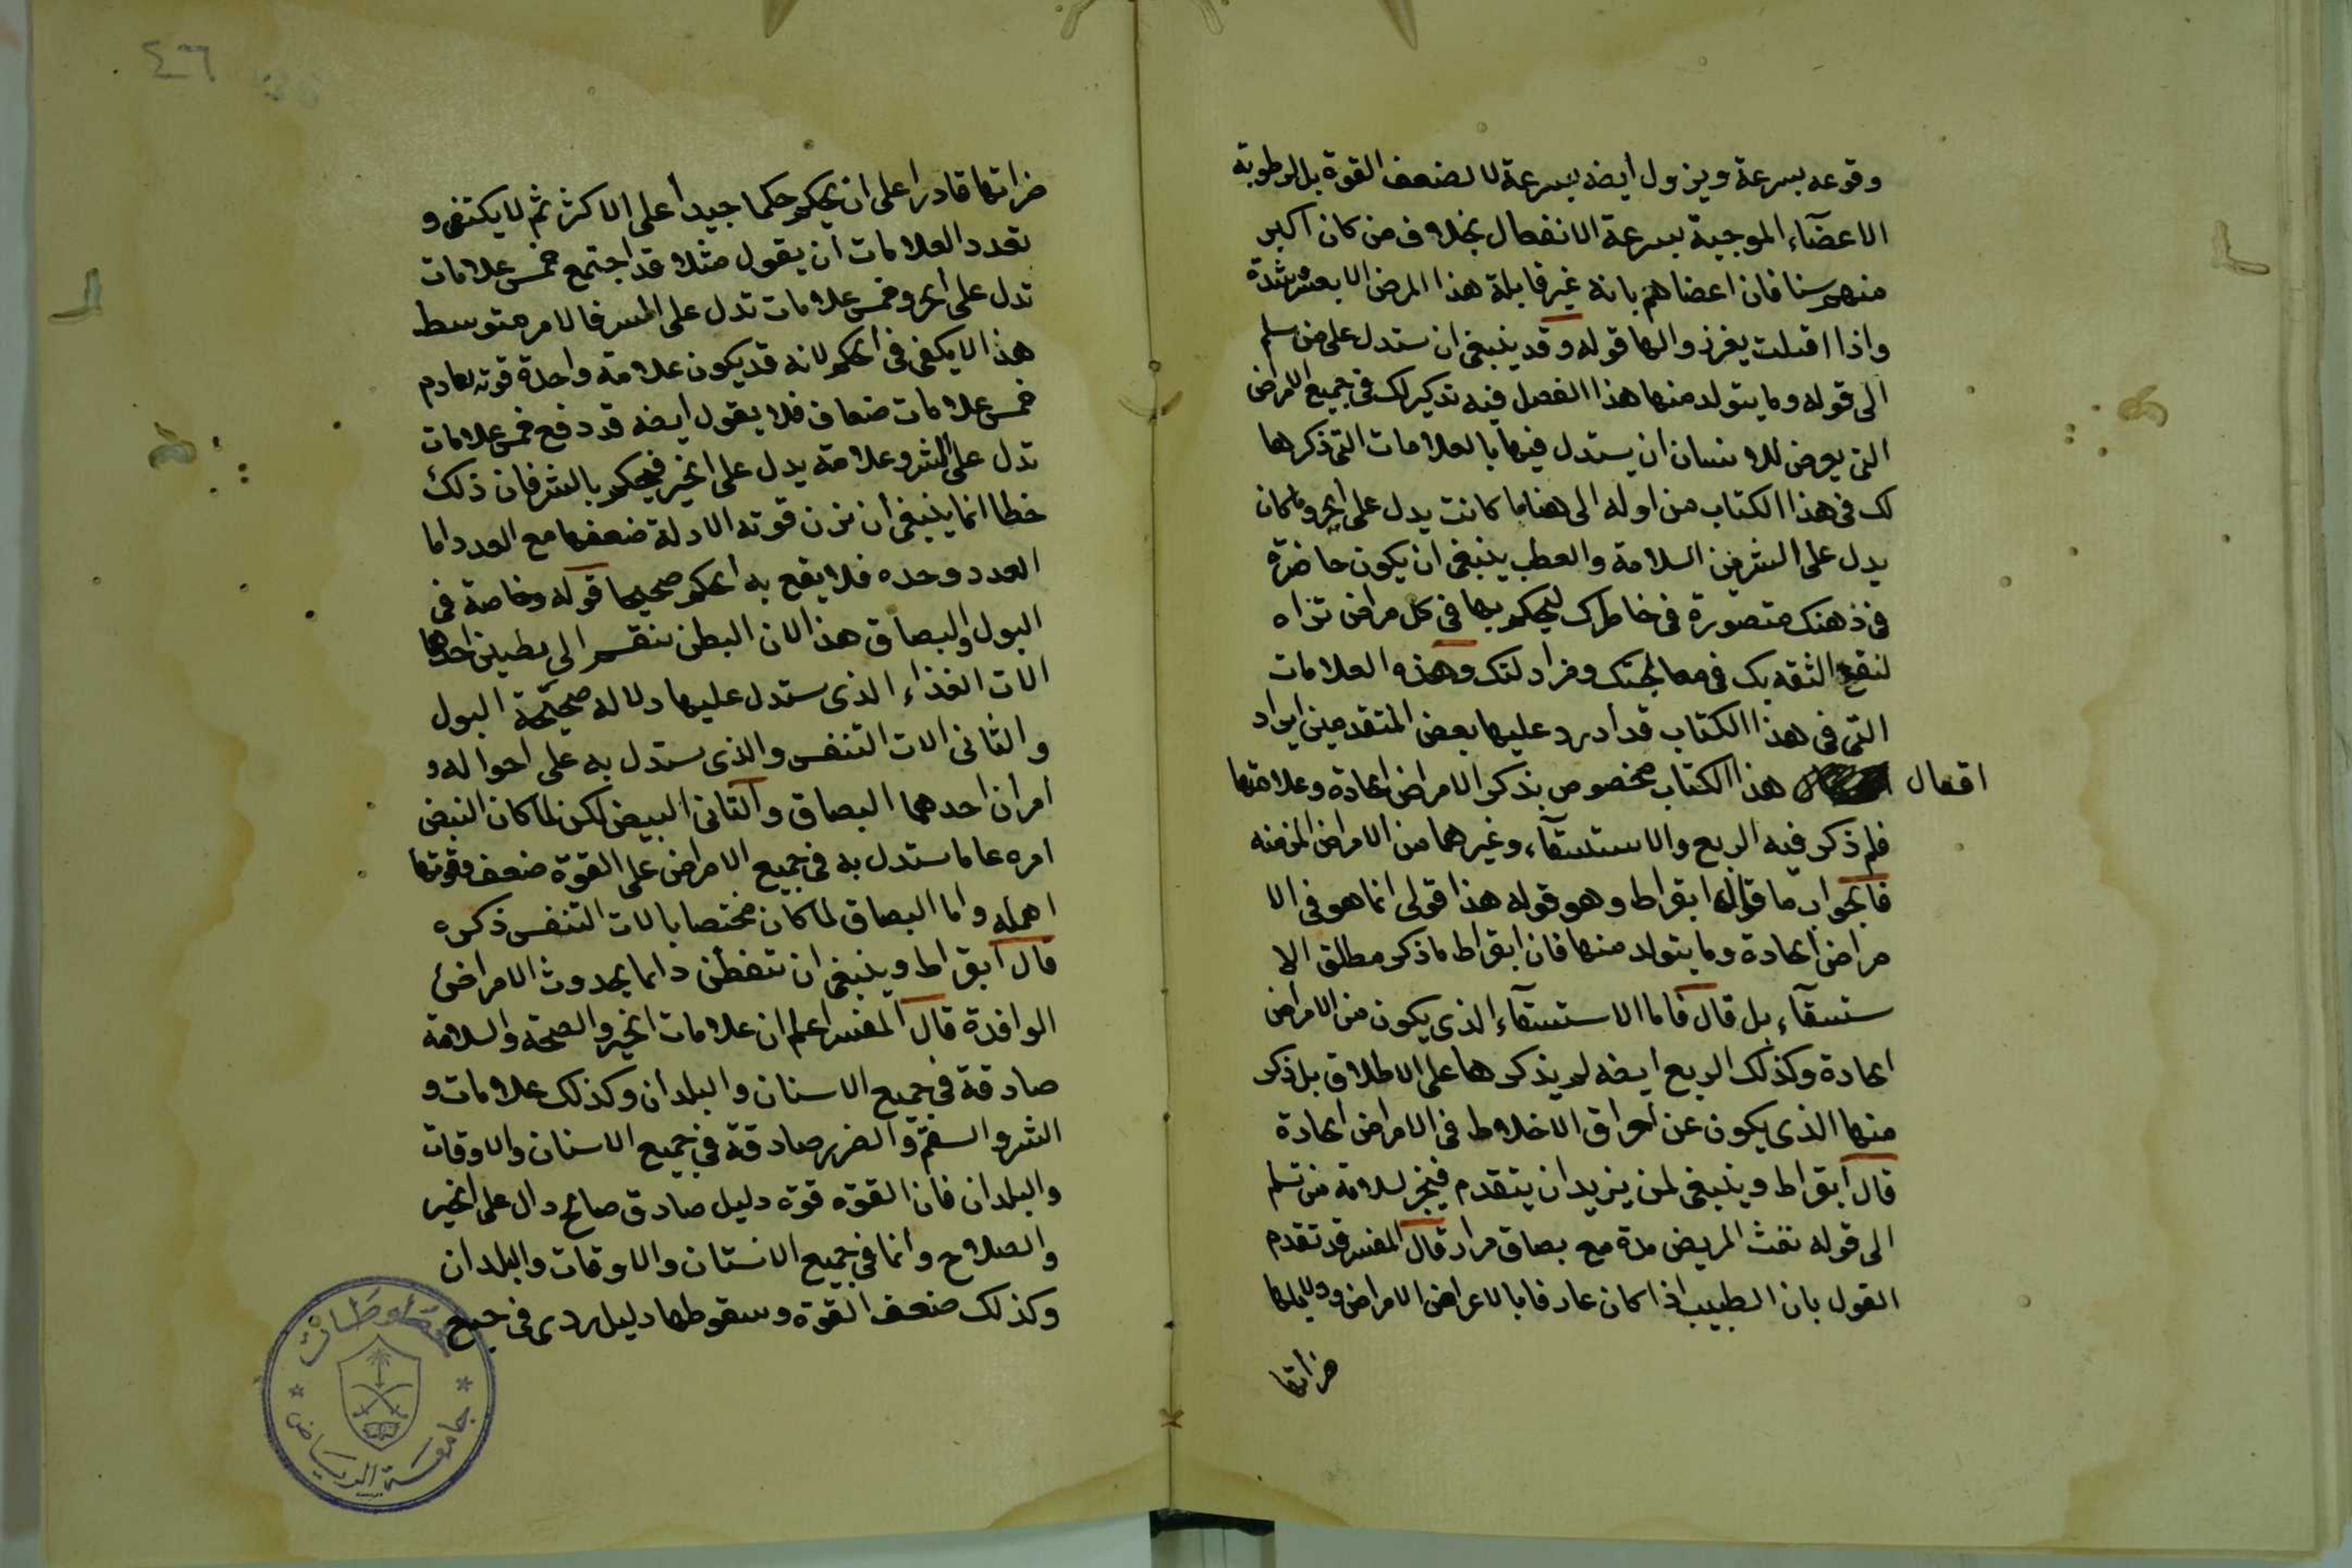 وقوعه بسرعة ويزول أيضه بسرعة لا لضعف القوة بل لرطوبة
الاعضآء الموجبة بسرعة الانفعال بخلاف من كان اكبر
منهم سنا فان اعضاهم يابة غير قابلة هذا المرض الا بعسر شدة
واذا اقبلت يغرز والها قوله وقد ينبغى ان ستدل على من سلم
الى قوله وما يتولد منها هذا الفصل فيه تذكير لك في جميع الامراض
التي يعرض للانسان ان يستدل فيها بالعلامات التى ذكرها
لك فى هذا الكتاب من اوله الى هنا ما كانت يدل على الخير وما كان
يدل على الشر من السلامة والعطب ينبغى ان يكون حاضرة
فى ذهنك متصورة فى خاطرك ليحكم بها في كل مراض تراه
لتقع الثقة بك في معالجتك ومزاولتك وهذه العلامات
التى فى هذا الكتاب قد اورد عليها بعض المتقدمين ايراد
افقال هذا الكتاب مخصوص بذكر الامراض الحادة وعلامتها
فلم ذكر فيه الربع والاستسقآء وغيرهما من الامراض المزمنه
فالجواب ما قاله ابقراط وهو قوله هذا قولى انما هو فى الا
مراض الحادة وما يتولد منها فان ابقراط ما ذكر مطلق الا
ستسقآء بل قال فاما الاستسقآء الذى يكون من الامراض
الحادة وكذلك الربع ايضه لم يذكرها على الاطلاق بل ذكر
منها الذى يكون عن احراق الاخلاط فى الامراض الحادة
قال ابقراط وينبغى لمن يريد ان يتقدم فيخبر لسلامة من تسلم
الى قوله نفث المريض مدة مع بصاق مرار قال المفسر قد تقدم
القول بان الطبيب اذا كان عارفا بالاعراض الامراض ودلايلها
مراتها
٤٦
مراتها قادرا على ان يحكم حكما جيدا على الاكثر ثم لا يكتفى و
تعدد العلامات ان يقول مثلا قد اجتمع خمس علامات
تدل على الخير وخمس علامات تدل على الشر فالامر متوسط
هذا لا يكفى فى الحكم لانه قد يكون علامة واحدة قوته تعادم
خمس علامات ضعاف فلا يقول ايضه قد دفع خمس علامات
تدل على الشر وعلامة يدل على الخير فيحكم بالشر فان ذلك
خطا انما ينبغى ان تزن قوته الادلة ضعفها مع العدد اما
العدد وحده فلا يقع به الحكم صحيحا قوله وخاصة فى
البول والبصاق هذا لان البطن ينقسم الى بطنين احدها
الات الغذاء الذى ستدل عليها دلاله صحيحة البول
والثانى الات التنفس والذى ستدل به على احواله و
امران احدهما البصاق والثانى النبض لكن لما كان النبض
امره عاما ستدل به فى جميع الامراض على القوة ضعف وقوتها
اهمله واما البصاق لما كان مختصا بالات التنفس ذكره
قال ابقراط وينبغى ان تتفطن دائما بحدوث الامراض
الوافدة قال المفسر اعلم ان علامات الخير والصحة والسلامة
صادقة في جميع الاسنان والبلدان وكذلك علامات و
الشر والسقم والضرر صادقة في جميع الاسنان والاوقات
والبلدان فان القوه قوة دليل صادق صالح دال على الخير
والصلاح وانما في جميع الانستان والاوقات والبلدان
وكذلك ضعف القوة وسقوطها دليل ردى فى جميع
مخطوطات
جامعة الرياض